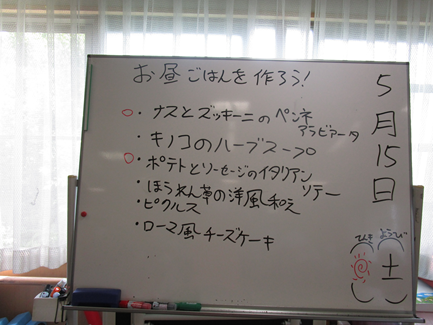 お昼ごはんを作ろう！
・ナスとズッキーニのペンネ
アラビアータ
・キノコのハーブスープ
・ポテトとソーセージのイタリアン
ソテー
・ほうれん草の洋風和え
・ピクルス
・ローマ風チーズケーキ
5月15日
どようび
(土)